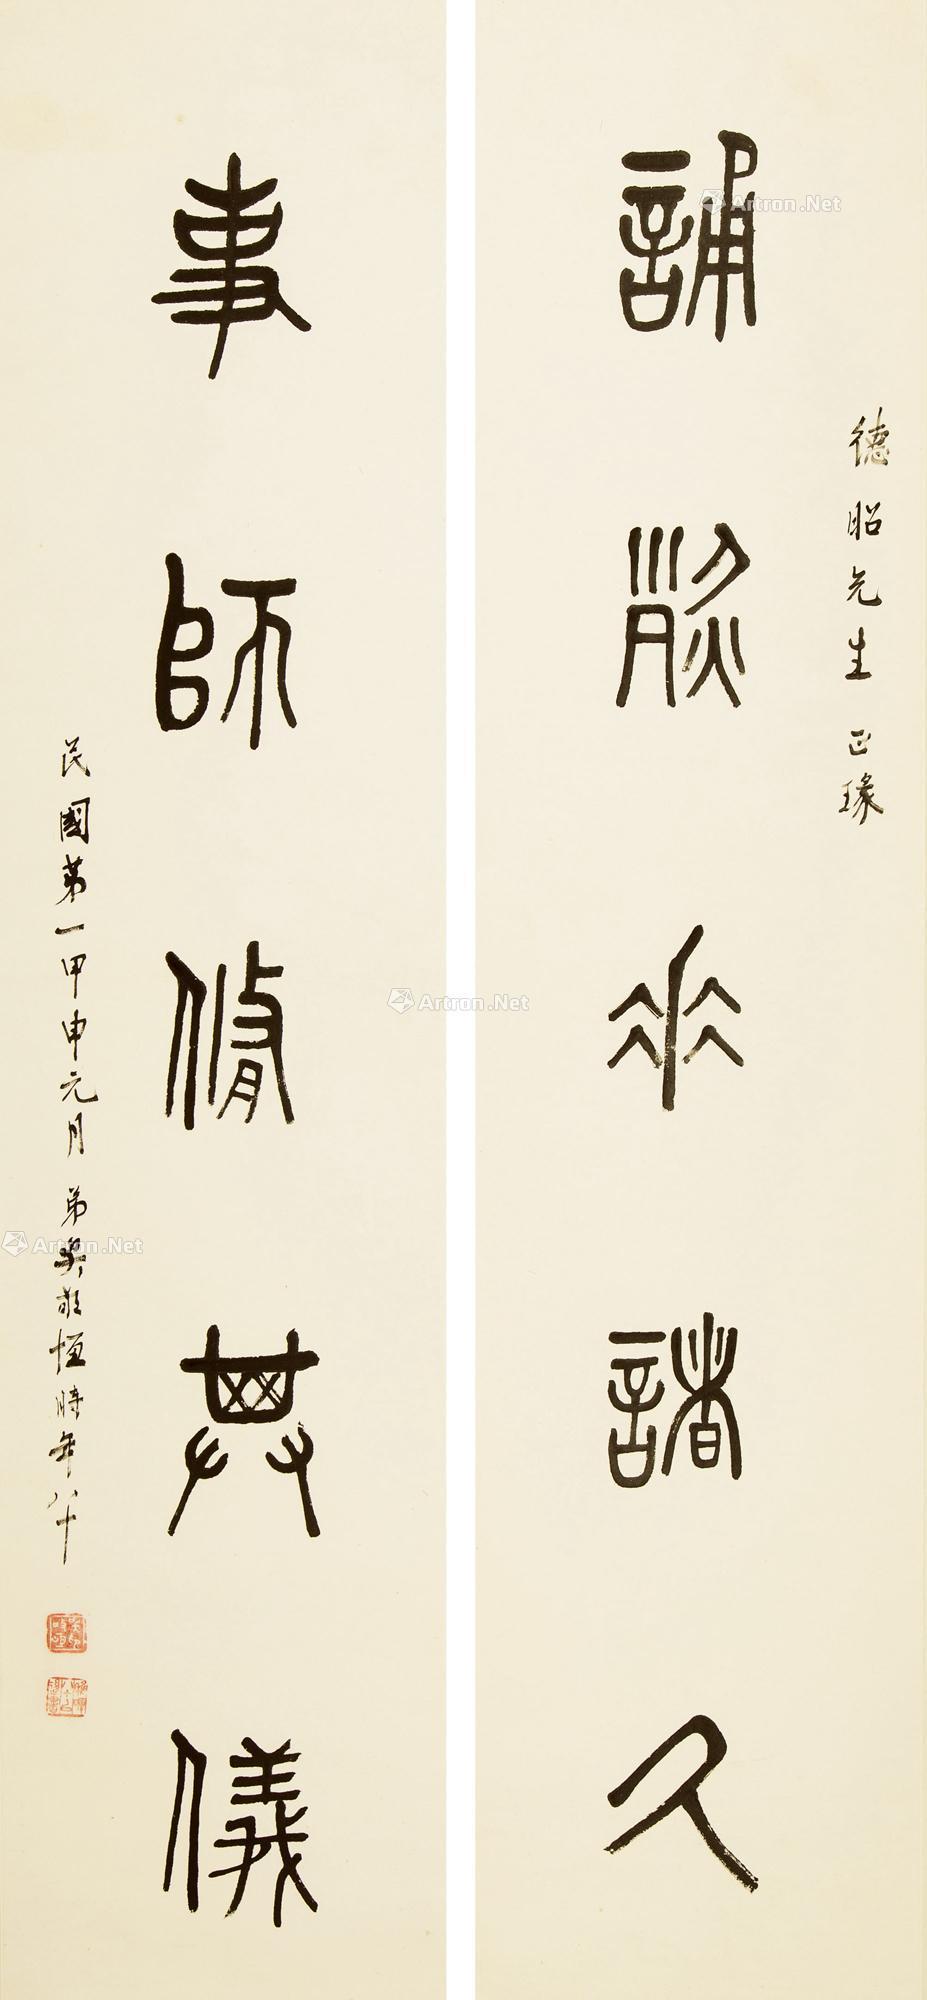 誦烈垂諸久
德昭先生 正瑑
事師脩其儀
民國第一甲申元月 弟吳敬恒時年八十
Artron.Net
Artron.Net
Artron.Net